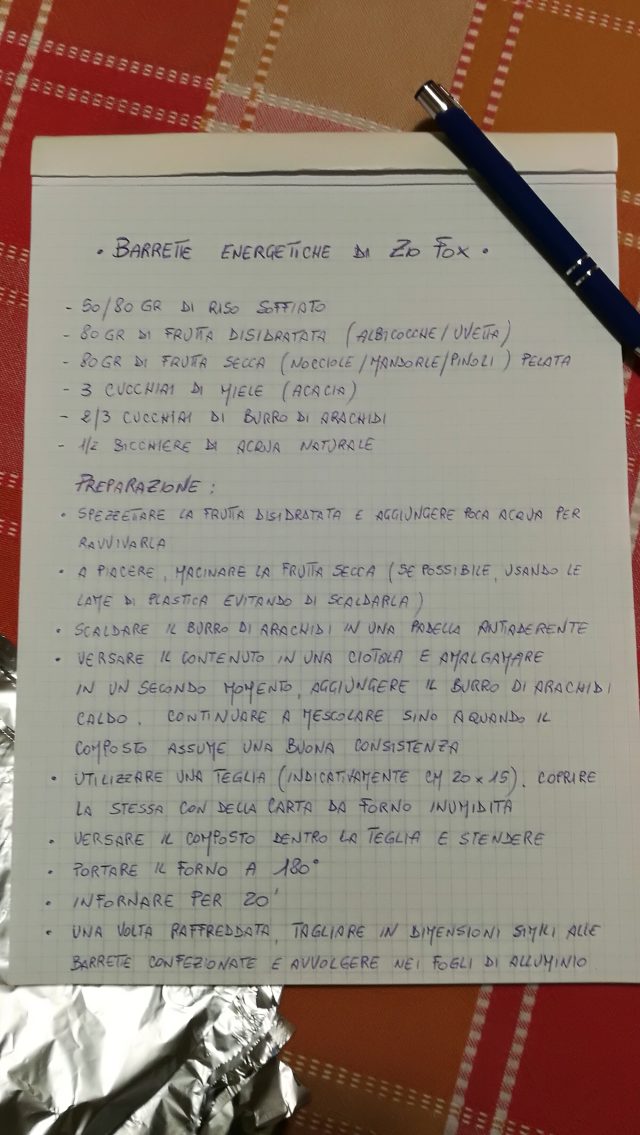 • BARRETTE ENERGETICHE DI ZIO FOX •
- 50/80 GR DI RISO SOFFIATO
- 80 GR DI FRUTTA DISIDRATATA (ALBICOCCHE/UVETTA)
- 80 GR DI FRUTTA SECCA (NOCCIOLE/MANDORLE/PINOLI) PELATA
- 3 CUCCHIAI DI MIELE (ACACIA)
- 2/3 CUCCHIAI DI BURRO DI ARACHIDI
- 1/2 BICCHIERE DI ACQUA NATURALE
PREPARAZIONE:
• SPEZZETTARE LA FRUTTA DISIDRATATA E AGGIUNGERE POCA ACQUA PER
RAVVIVARLA
• A PIACERE, MACINARE LA FRUTTA SECCA (SE POSSIBILE, USANDO LE
LAME DI PLASTICA EVITANDO DI SCALDARLA)
• SCALDARE IL BURRO DI ARACHIDI IN UNA PADELLA ANTIADERENTE
• VERSARE IL CONTENUTO IN UNA CIOTOLA E AMALGAMARE
IN UN SECONDO MOMENTO, AGGIUNGERE IL BURRO DI ARACHIDI
CALDO. CONTINUARE A MESCOLARE SINO A QUANDO IL
COMPOSTO ASSUME UNA BUONA CONSISTENZA
• UTILIZZARE UNA TEGLIA (INDICATIVAMENTE CM 20 x 15). COPRIRE
LA STESSA CON DELLA CARTA DA FORNO INUMIDITA
• VERSARE IL COMPOSTO DENTRO LA TEGLIA E STENDERE
• PORTARE IL FORNO A 180°
• INFORNARE PER 20'
• UNA VOLTA RAFFREDDATA, TAGLIARE IN DIMENSIONI SIMILI ALLE
BARRETTE CONFEZIONATE E AVVOLGERE NEI FOGLI DI ALLUMINIO